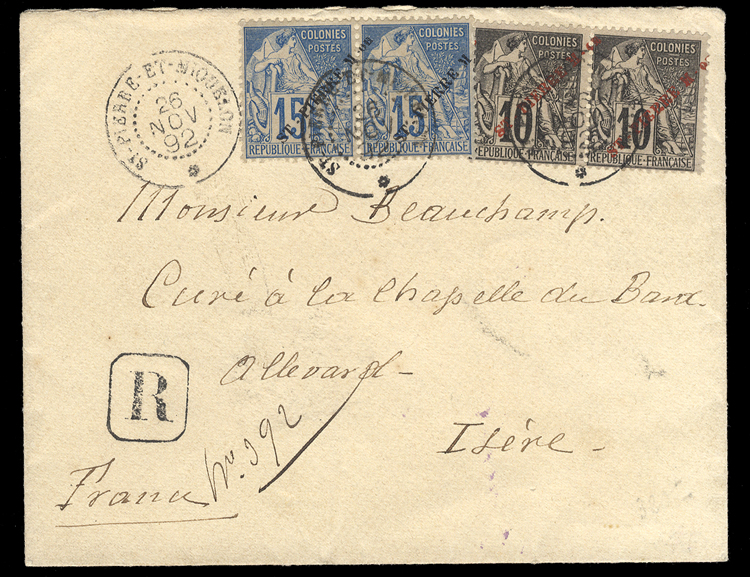 COLONIES POSTES
15
RÉPUBLIQUE FRANÇAISE
ST PIERRE M on
COLONIES POSTES
15
RÉPUBLIQUE FRANÇAISE
ST PIERRE M
COLONIES POSTES
10
RÉPUBLIQUE FRANÇAISE
COLONIES POSTES
10
RÉPUBLIQUE FRANÇAISE
ST-PIERRE-ET-MIQUELON
26
NOV
92
Monsieur Beauchamp.
Curé à la Chapelle du Bard.
Allevard-
R
No. 392
Isére-
France